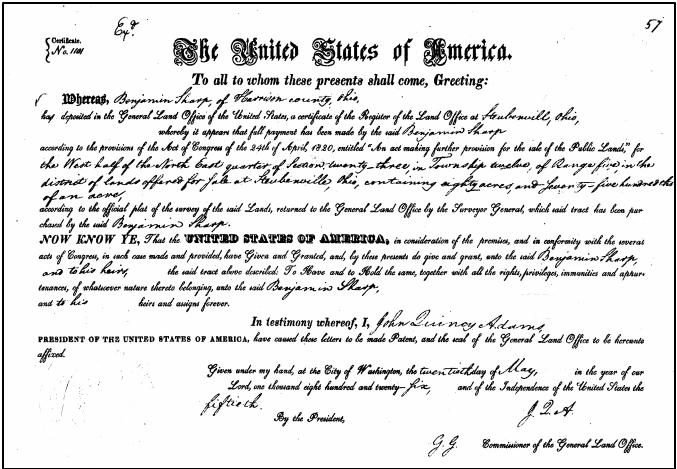 Exd. 57
Certificate.
No. 1101
The United States of America.
To all to whom these presents shall come, Greeting:
Whereas, Benjamin Sharp, of Harrison county, Ohio,
has deposited in the General Land Office of the United States, a certificate of the Register of the Land Office at Steubenville, Ohio,
whereby it appears that full payment has been made by the said Benjamin Sharp
according to the provisions of the Act of Congress of the 24th of April, 1820, entitled "An act making further provision for the sale of the Public Lands," for
the West half of the North East quarter of Section twenty-three, in Township twelve, of Range five, in the
district of lands offered for Sale at Steubenville, Ohio, containing eighty acres, and Seventy-five hundredths
of an acre,
according to the official plat of the survey of the said Lands, returned to the General Land Office by the Surveyor General, which said tract has been pur
chased by the said Benjamin Sharp.
NOW KNOW YE, That the UNITED STATES OF AMERICA, in consideration of the premises, and in conformity with the several
acts of Congress, in such case made and provided, have Given and Granted, and, by these presents do give and grant, unto the said Benjamin Sharp,
and to his heirs, the said tract above described: To Have and to Hold the same, together with all the rights, privileges, immunities and appur-
tenances, of whatsoever nature thereto belonging, unto the said Benjamin Sharp,
and to his heirs and assigns forever.
In testimony whereof, I, John Quincy Adams,
PRESIDENT OF THE UNITED STATES OF AMERICA, have caused these letters to be made Patent, and the seal of the General Land Office to be hereunto
affixed.
Given under my hand, at the City of Washington, the twentieth day of May, in the year of our
Lord, one thousand eight hundred and twenty-six, and of the Independence of the United States the
fiftieth.
J. Q. A.
By the President,
G. G. Commissioner of the General Land Office.